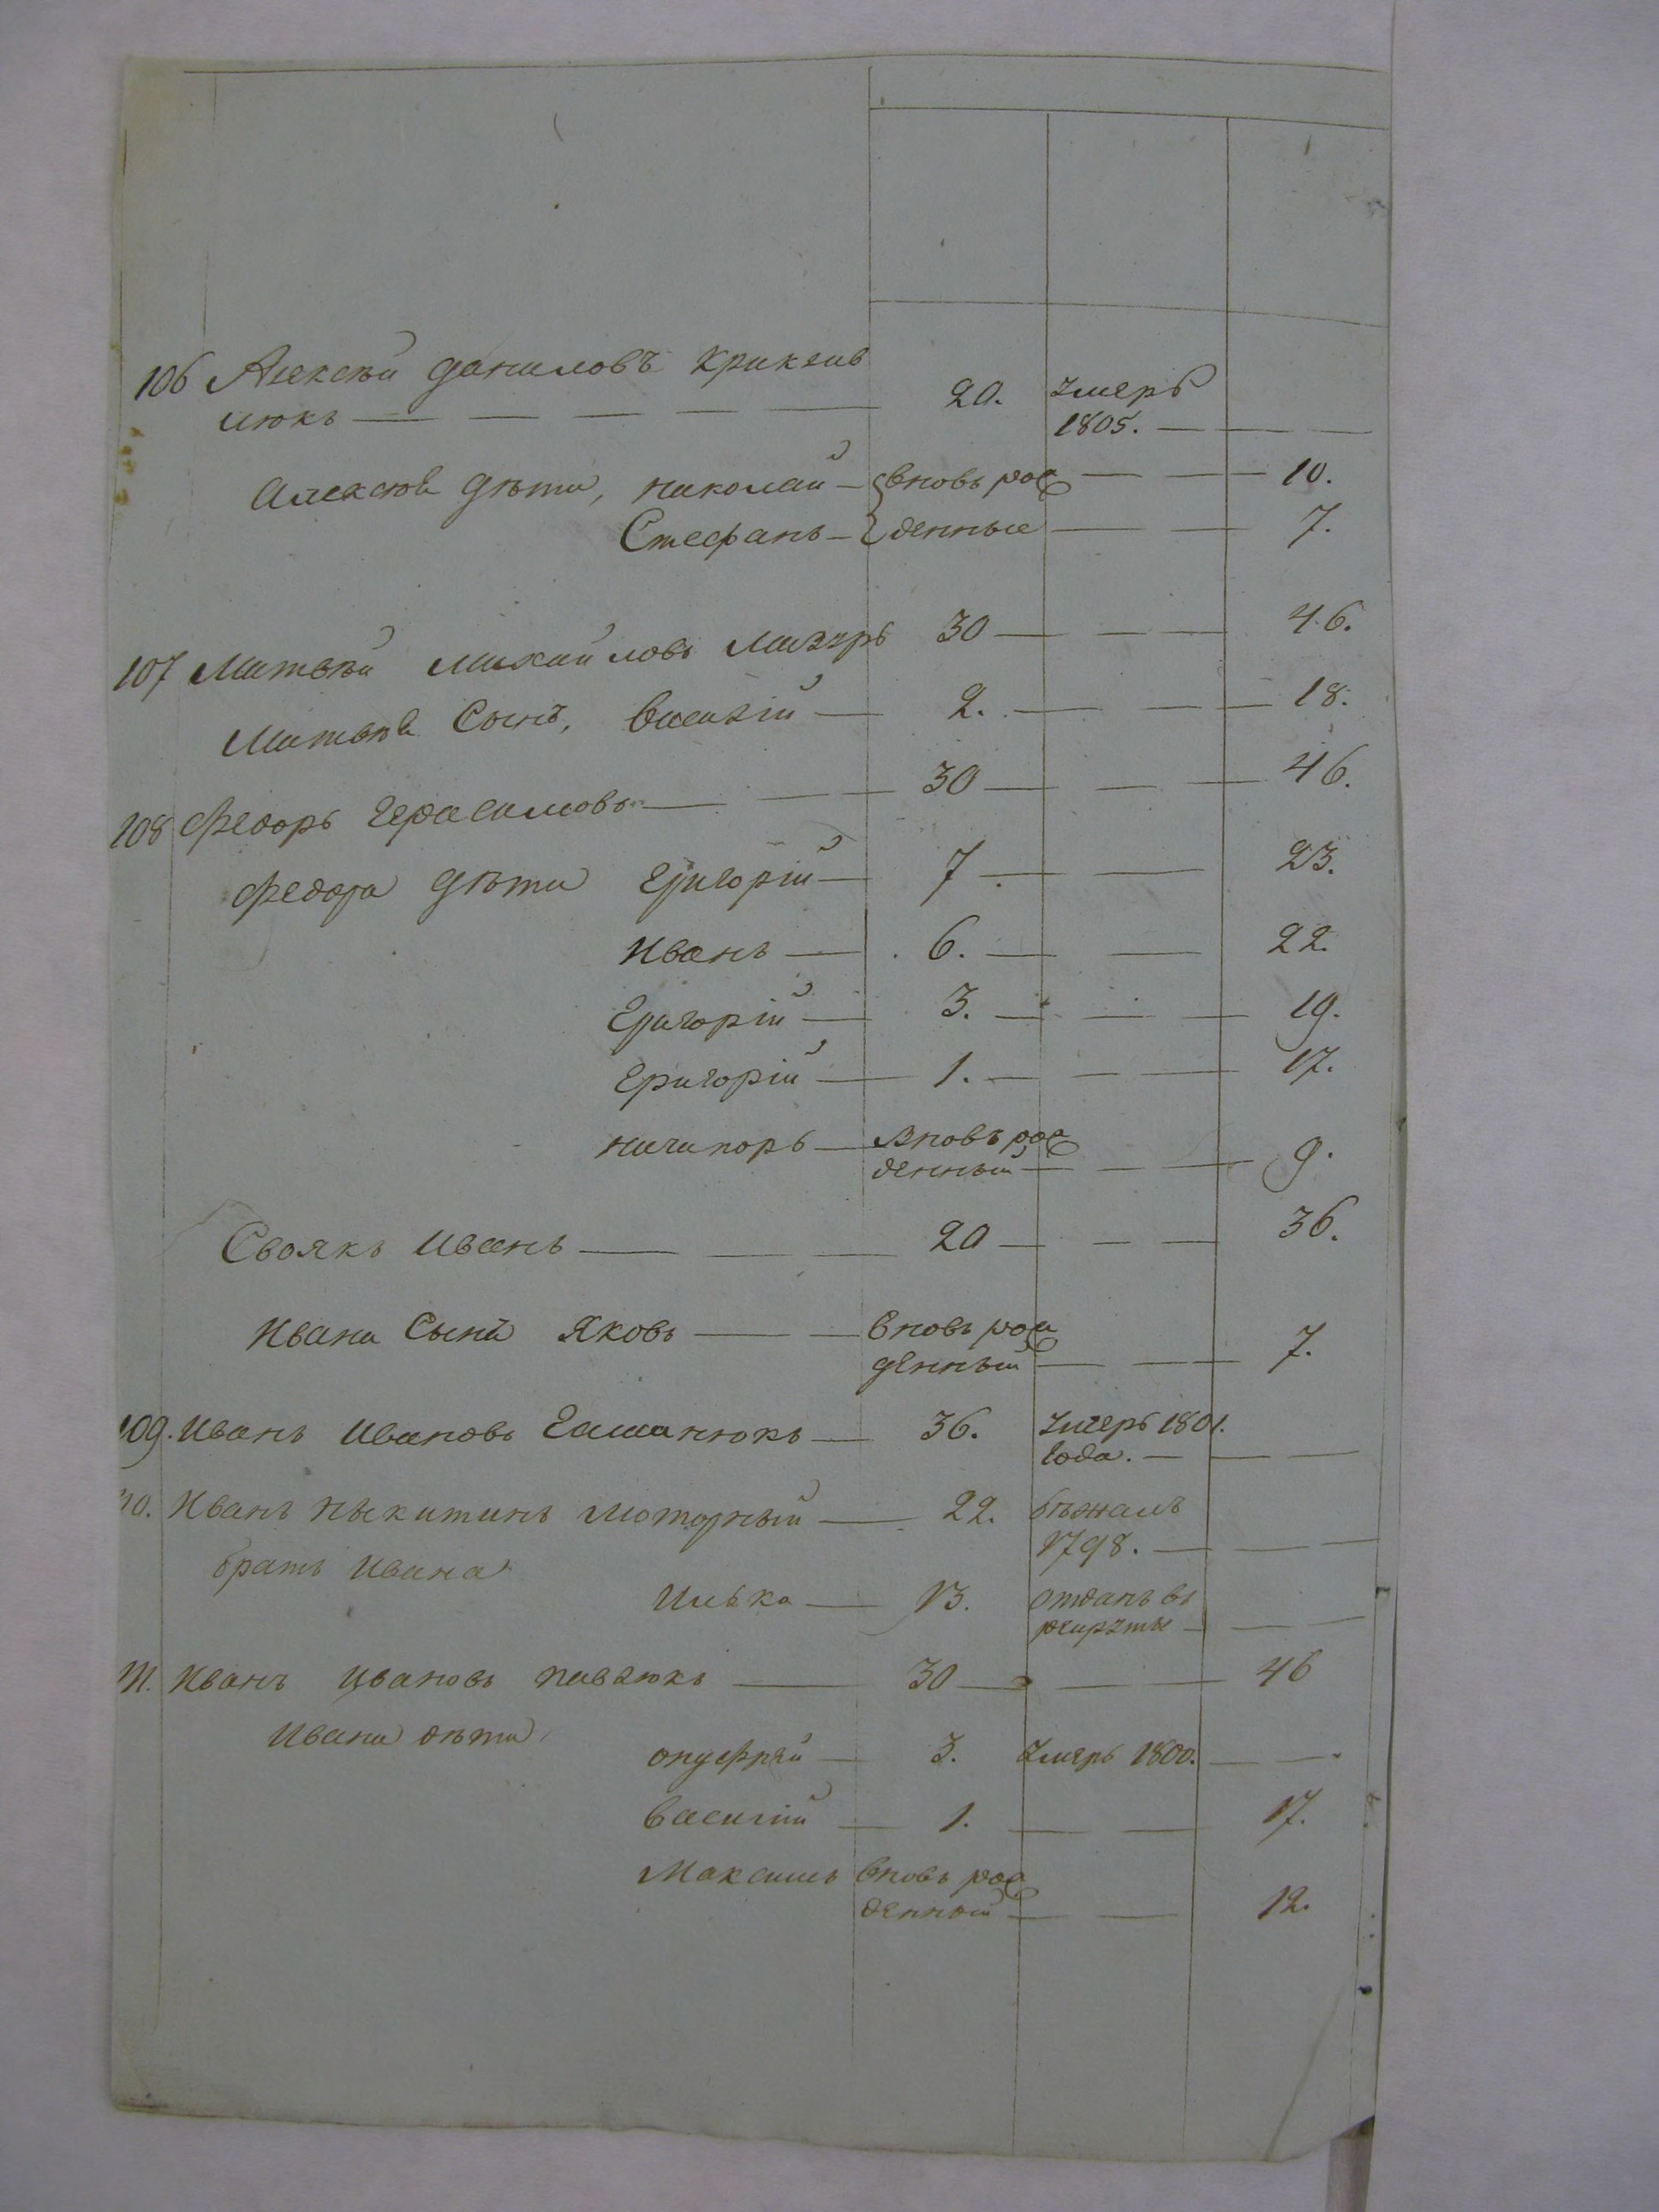 106 Алексѣй даниловъ Криклив
июкъ — — — — — 20. Умеръ
1805. — — —
Алексѣя дѣти, николай — вновь рож — — — 10.
Стефанъ — денные — — 7.
107 Матвѣй михайловъ Мазуръ 30 — — — 46.
Матвѣя Сынъ, василій — 2. — — — 18.
108 Федоръ Герасимовъ — — — 30 — — — 46.
Федора дѣти Григорій — 7. — — 23.
Иванъ — 6. — — 22.
Григорій — 3. — — — 19.
Григорій — 1. — — — 17.
ничипоръ — Вновь рож
денный — — — 9.
Своякъ иванъ — — — 20 — — — 36.
Ивана Сынъ Яковъ — — вновь рож
денный — — — 7.
109. Иванъ Ивановъ — 36. Умеръ 1801.
года. — — — —
110. Иванъ Никитинъ моторный — 22. бѣжалъ
1798. — — —
братъ Ивана
Илько — 13. отданъ въ
рекруты — — —
111. Иванъ Ивановъ павлюкъ — 30 — — — 46
Ивана дѣти
онуфрей — 3. Умеръ 1800. — —
василій — 1. — — 17.
Максимъ вновь рож
денный — — 12.